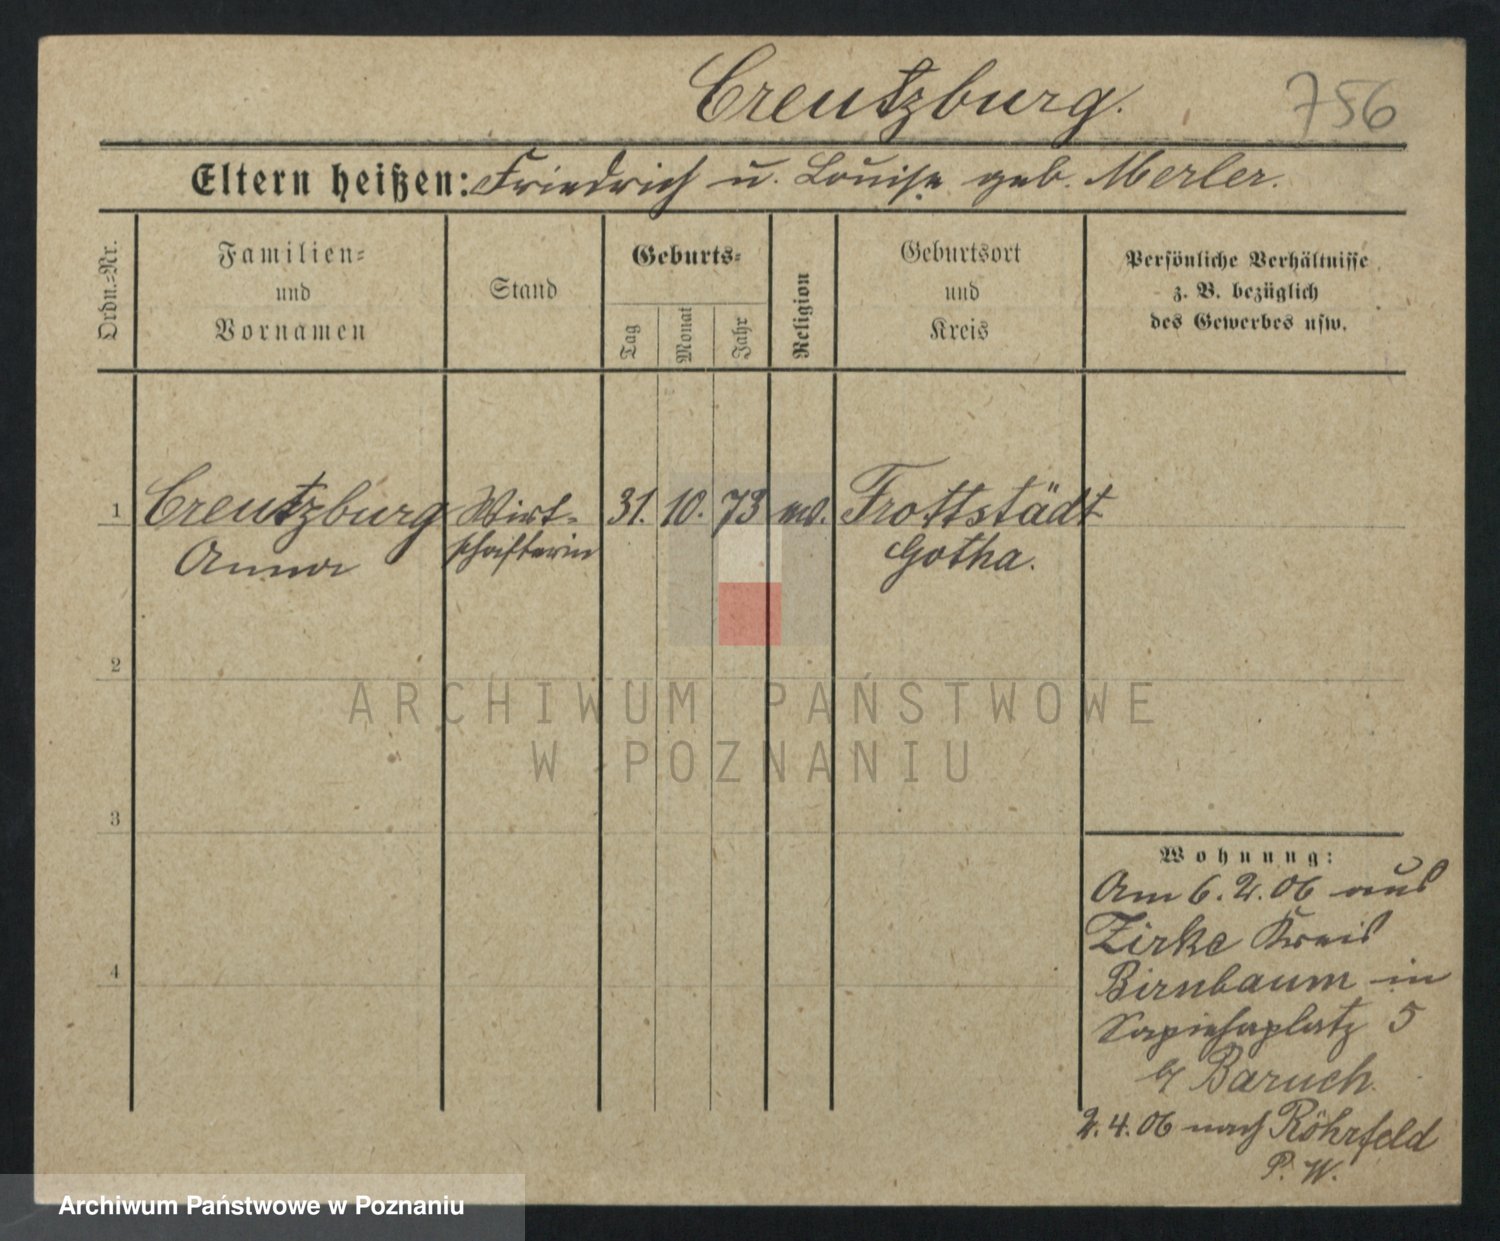 Creutzburg.
756
Eltern heißen: Friedrich u. Louise geb. Merler.
Ordn.=Nr.
Familien=
und
Vornamen
Stand
Geburts=
Tag
Monat
Jahr
Religion
Geburtsort
und
Kreis
Persönliche Verhältnisse
z. B. bezüglich
des Gewerbes usw.
1 Creutzburg Wirt- 31. 10. 73 ev. Frottstädt
Anna schafterin Gotha.
2
3
4
Wohnung:
Am 6. 2. 06 aus
Zirke Kreis
Birnbaum in
Sapiehaplatz 5
b/ Baruch
2. 4. 06 nach Röhrfeld
P. W.
ARCHIWUM PAŃSTWOWE
W POZNANIU
Archiwum Państwowe w Poznaniu